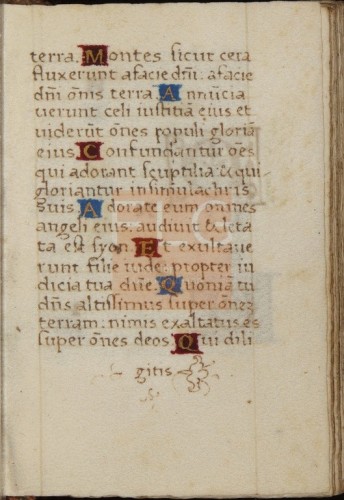 terra. Montes sicut cera
fluxerunt a facie dn̄i: a facie
dn̄i om̄is terra. Annūcia
uerunt celi iustitiā eius et
uiderūt om̄es populi gloriā
eius. Confundantur om̄es
qui adorant sculptilia: & qui
gloriantur in simulachris
suis. Adorate eum omnes
angeli eius: audiuit & leta
ta est syon. Et exultaue
runt filie iude: propter iu
dicia tua dn̄e. Quoniā tu
dn̄s altissimus super om̄ez
terram: nimis exaltatus es
super om̄es deos. Qui dili
gitis